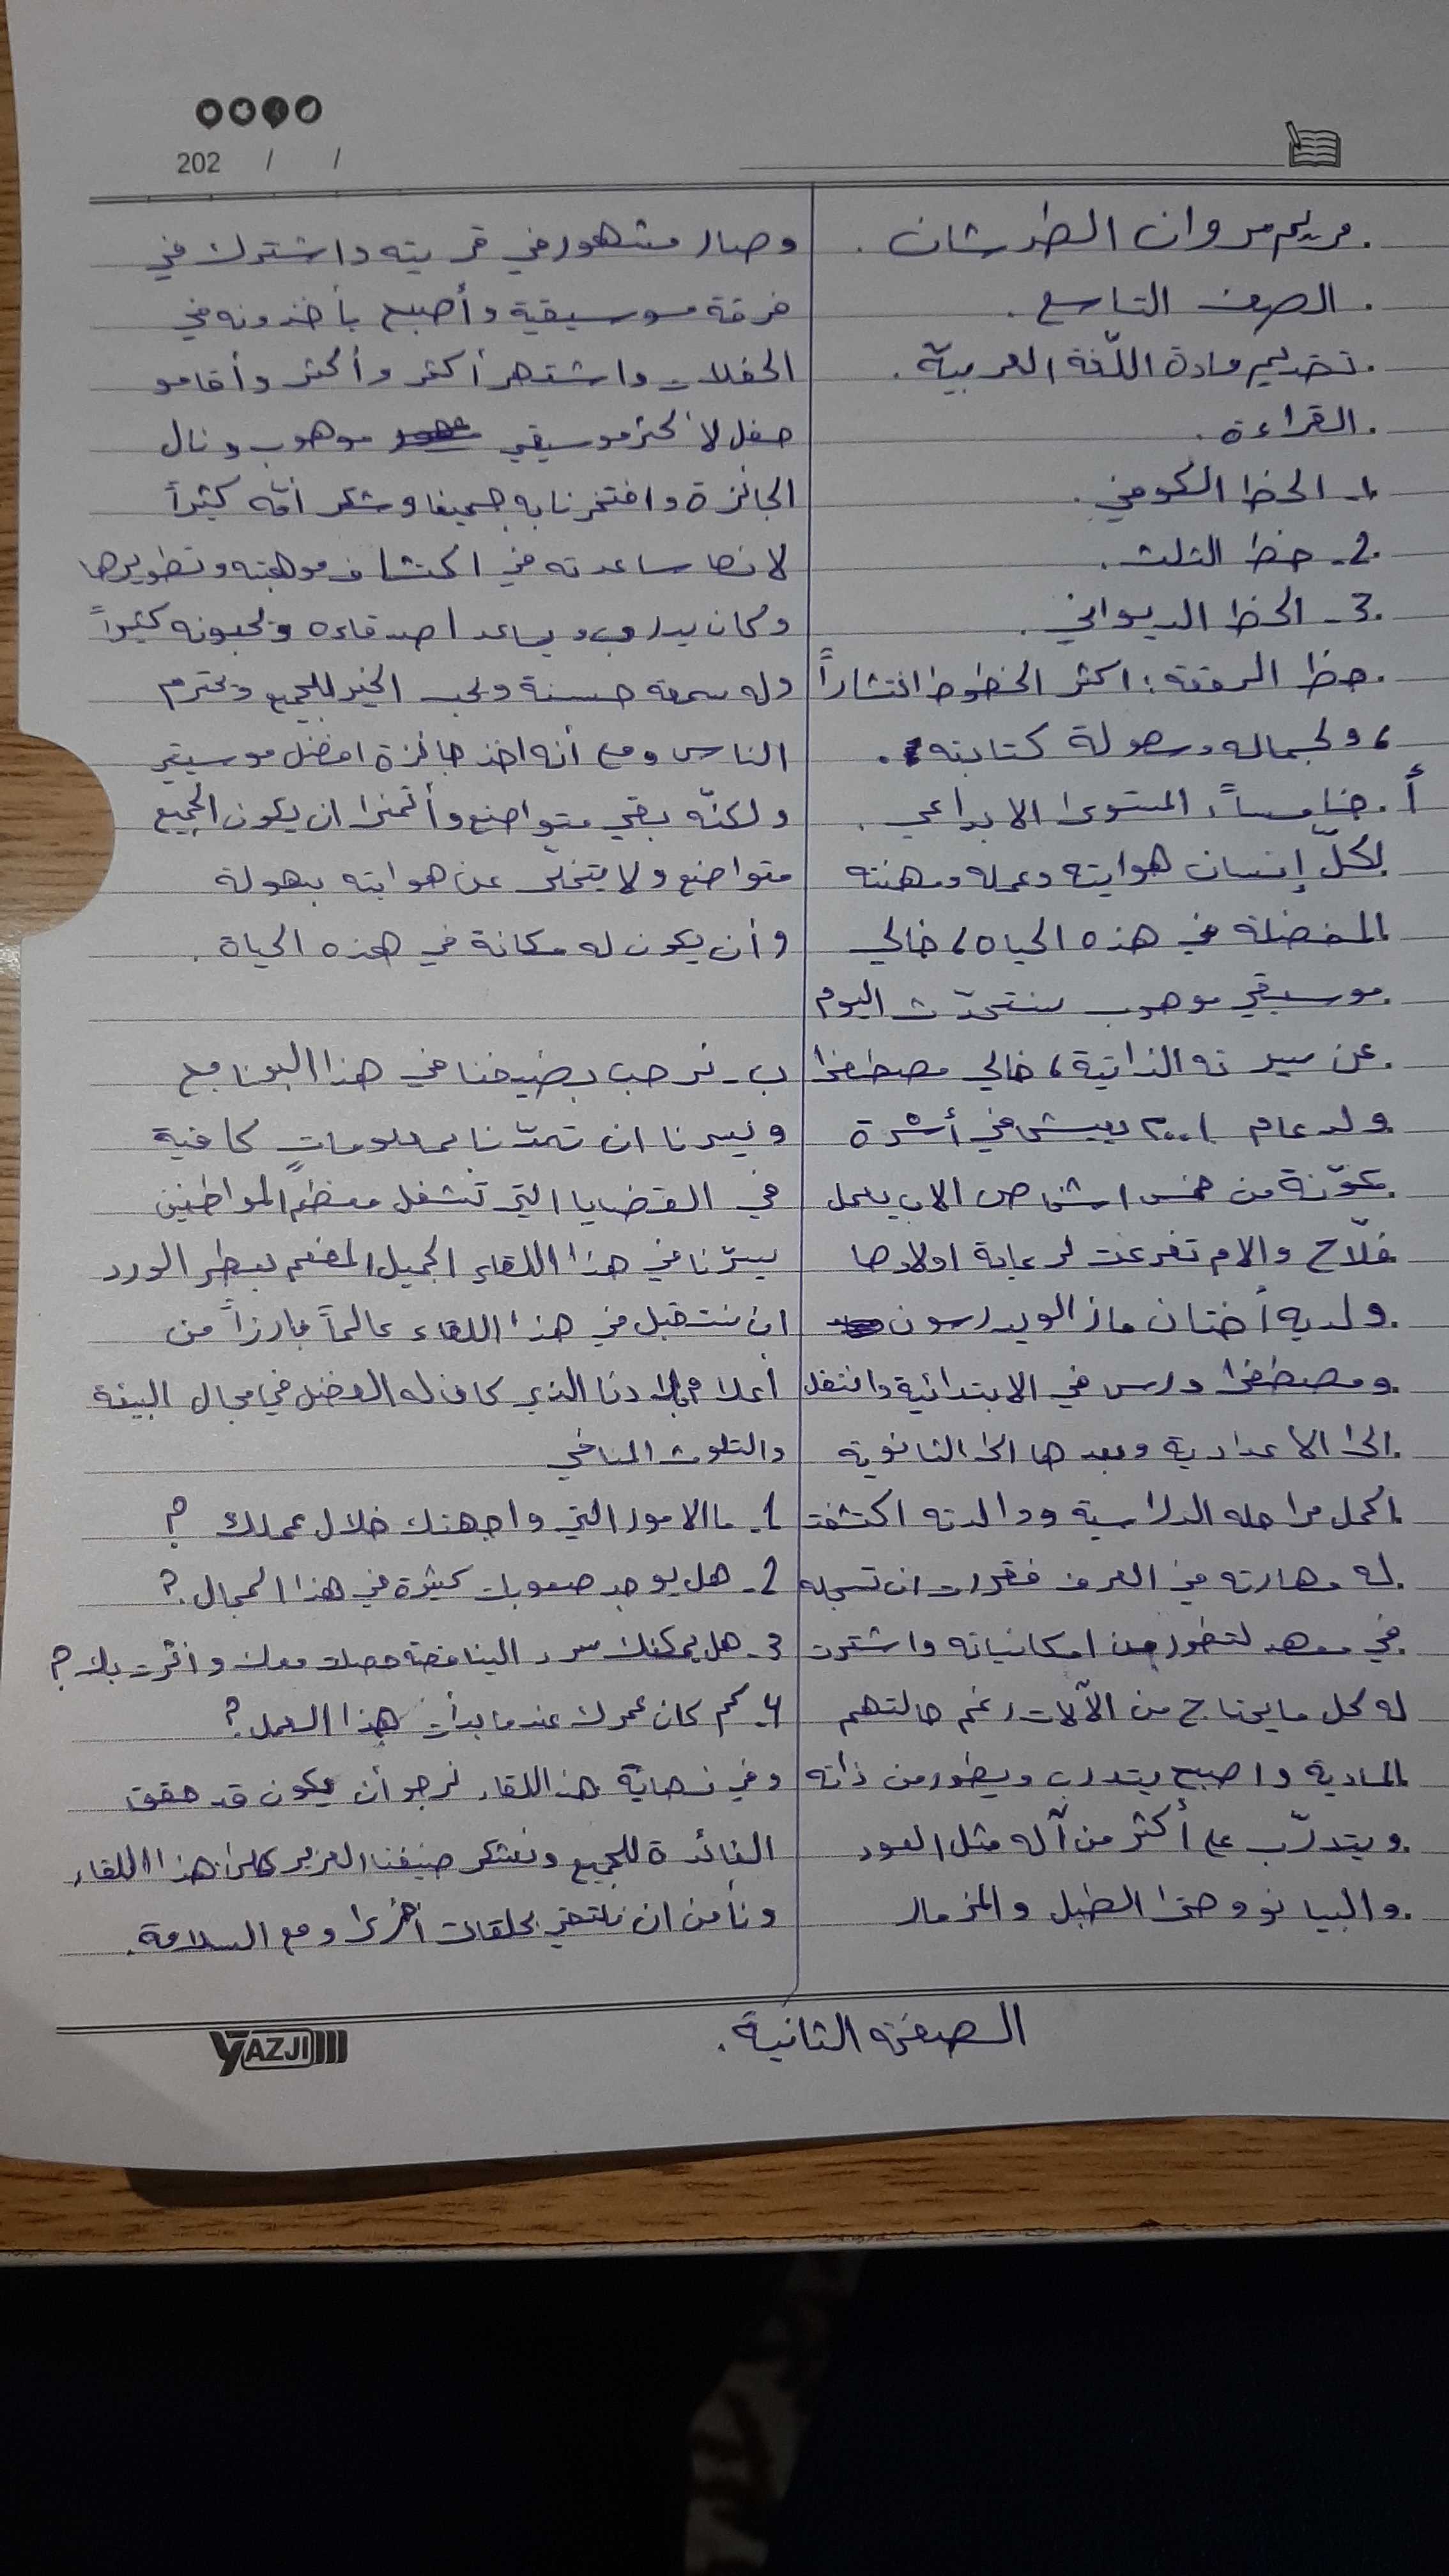 202 / /
مريم مروان الطرشان.
الصف التاسع.
تقديم مادة اللّغة العربيّة.
القراءة.
1- الخط الكوفي.
2- خط الثلث.
3- الخط الديواني.
خط الرقعة: اكثر الخطوط انتشاراً
، ولجماله وسهولة كتابته.
أ. خامساً: المستوى الابداعي.
لكلّ إنسان هوايته وعمله ومهنته
المفضلة في هذه الحياه، خالي
موسيقي موهوب سنتحدّث اليوم
عن سيرته الذاتية، خالي مصطفى
ولد عام ٢٠٠١ يعيش في أسرة
مكوّنة من خمس اشخاص الاب يعمل
فلّاح والام تفرغت لرعاية اولادها
ولديه أختان مازالو يدرسون
ومصطفى درس في الابتدائية وانتقل
الى الاعدادية وبعدها الى الثانوية
اكمل مراحله الدراسية ووالدته اكتشفت
له مهارته في العزف فقررت ان تسجله
في معهد لتطور من امكانياته واشترت
له كل مايحتاج من الآلات رغم حالتهم
المادية واصبح يتدرب ويطور من ذاته
ويتدرّب على أكثر من آله مثل العود
والبيانو وحتى الطبل والمزمار
وصار مشهور في قريته واشترك في
فرقة موسيقية وأصبح يأخذونه في
الحفلات واشتهر أكثر وأكثر وأقامو
حفل لأكثر موسيقي موهوب ونال
الجائزة وافتخرنا به جميعا وشكر أمّه كثيراً
لانها ساعدته في اكتشاف موهبته وتطويرها
وكان يدرب ويساعد اصدقاءه ويحبونه كثيراً
وله سمعة حسنة ويحب الخير للجميع ويحترم
الناس ومع أنه اخذ جائزة افضل موسيقي
ولكنّه بقي متواضع وأتمنى ان يكون الجميع
متواضع ولا يتخلى عن هوايته بسهولة
وأن يكون له مكانة في هذه الحياة.
ب- نرحب بضيفنا في هذا البرنامج
ويسرنا ان تمدّنا بمعلوماتٍ كافية
في القضايا التي تشغل معظم المواطنين
يسرّنا في هذا اللقاء الجميل المفعم بعطر الورد
ان نستقبل في هذا اللقاء عالماً بارزاً من
أعلام بلادنا الذي كان له الفضل في مجال البيئة
والتلوث المناخي
1- ما الامور التي واجهتك خلال عملك؟
2- هل يوجد صعوبات كثيرة في هذا المجال؟
3- هل يمكنك سرد الينا قصة حصلت معك واثرت بك؟
4- كم كان عمرك عندما بدأت هذا العمل؟
وفي نهاية هذا اللقاء نرجو أن يكون قد حقق
الفائدة للجميع ونشكر ضيفنا العزيز على هذا اللقاء
ونأمن ان نلتقي بحلقات اخرى ومع السلامة.
الصفحه الثانية.
YAZJI